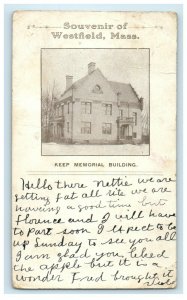 Souvenir of
Westfield, Mass.
KEEP MEMORIAL BUILDING.
Hello there Nettie we are
getting fat all rite we are
having a good time but
Florence and I will have
to part soon I expect to go
up Sunday to see you all
I am glad you liked
the apple but it is a
wonder Fred brought it